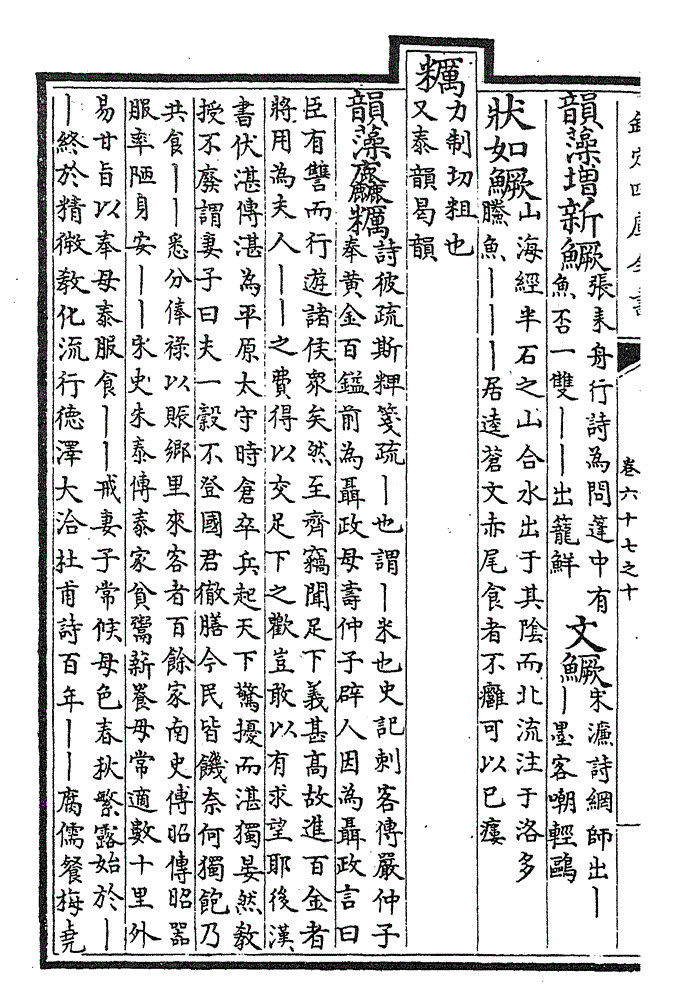 欽定四庫全書
卷六十七之十
韻藻增新鱖
張耒舟行詩為問蓬中有
魚否一雙丨丨出籠鮮
文鱖
宋濂詩網師出丨
丨墨客嘲輕鷗
狀如鱖
山海經半石之山合水出于其陰而北流注于洛多
䲢魚丨丨丨居逵蒼文赤尾食者不癰可以已瘻
糲
力制切粗也
又泰韻曷韻
韻藻麤糲
詩彼疏斯粺箋疏丨也謂丨米也史記刺客傳嚴仲子
奉黃金百鎰前為聶政母壽仲子辟人因為聶政言曰
臣有讐而行遊諸侯衆矣然至齊竊聞足下義甚高故進百金者
將用為夫人丨丨之費得以交足下之歡豈敢以有求望耶後漢
書伏湛傳湛為平原太守時倉卒兵起天下驚擾而湛獨晏然教
授不廢謂妻子曰夫一穀不登國君徹膳今民皆饑奈何獨飽乃
共食丨丨悉分俸祿以賑鄉里來客者百餘家南史傳昭傳昭器
服率陋身安丨丨宋史朱泰傳泰家貧鬻薪養母常適數十里外
易甘旨以奉母泰服食丨丨戒妻子常候母色春秋繁露始於丨
丨終於精微教化流行德澤大洽杜甫詩百年丨丨腐儒餐梅堯